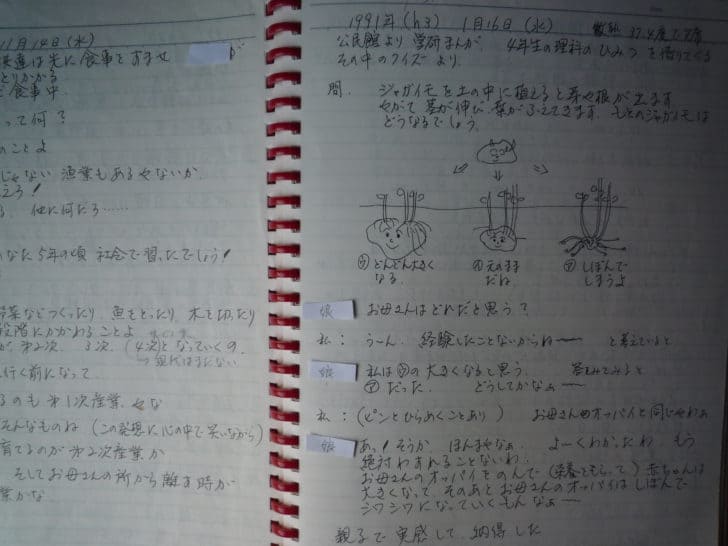 11月14日(水)
は先に食事をすませ が
とりかかる
食事中
って何?
のことよ
じゃない 漁業もあるやないか
えう!
る、他に何だろ……
なた5年の頃 社会で習ったでしょう!
野菜などつくったり 魚をとったり 木を切ったり
段階にかかわることよ
が 第2次. 3次. (4次)となっていくの.
行く前になって
るのも第1次産業 やな
そんなものね (この発想に心の中で笑いながら)
育てるのが第2次産業か
そしてお母さんの所から離す時が
業かな
1991年(h3) 1月16日(水) 微熱 37.4度
公民館より 学研まんが 4年生の理科のひみつ を借りてくる
その中のクイズより.
問. ジャガイモを土の中に植えると芽や根が出ます
やがて 茎が伸び 葉がふえてきます. もとのジャガイモは
どうなるでしょう。
㋐どんどん大きく
なる.
㋑元のまま
だね
㋒しぼんで
しまうよ
娘 お母さんはどれだと思う?
私: うーん. 経験したことないからねー と考えていると
娘 私は㋐の大きくなると思う. 答をみてみると
㋒だった. どうしてかなぁー
私: (ピンとひらめくことあり) お母さんのオッパイと同じやわぁ
娘 あっ! そうか ほんまやなぁ. よーくわかったわ もう
絶対わすれることないわ.
お母さんのオッパイをのんで(栄養をもらって)赤ちゃんは
大きくなって. そのあとお母さんのオッパイはしぼんで
シワシワになっていくもんなぁー
親子で実感して 納得した